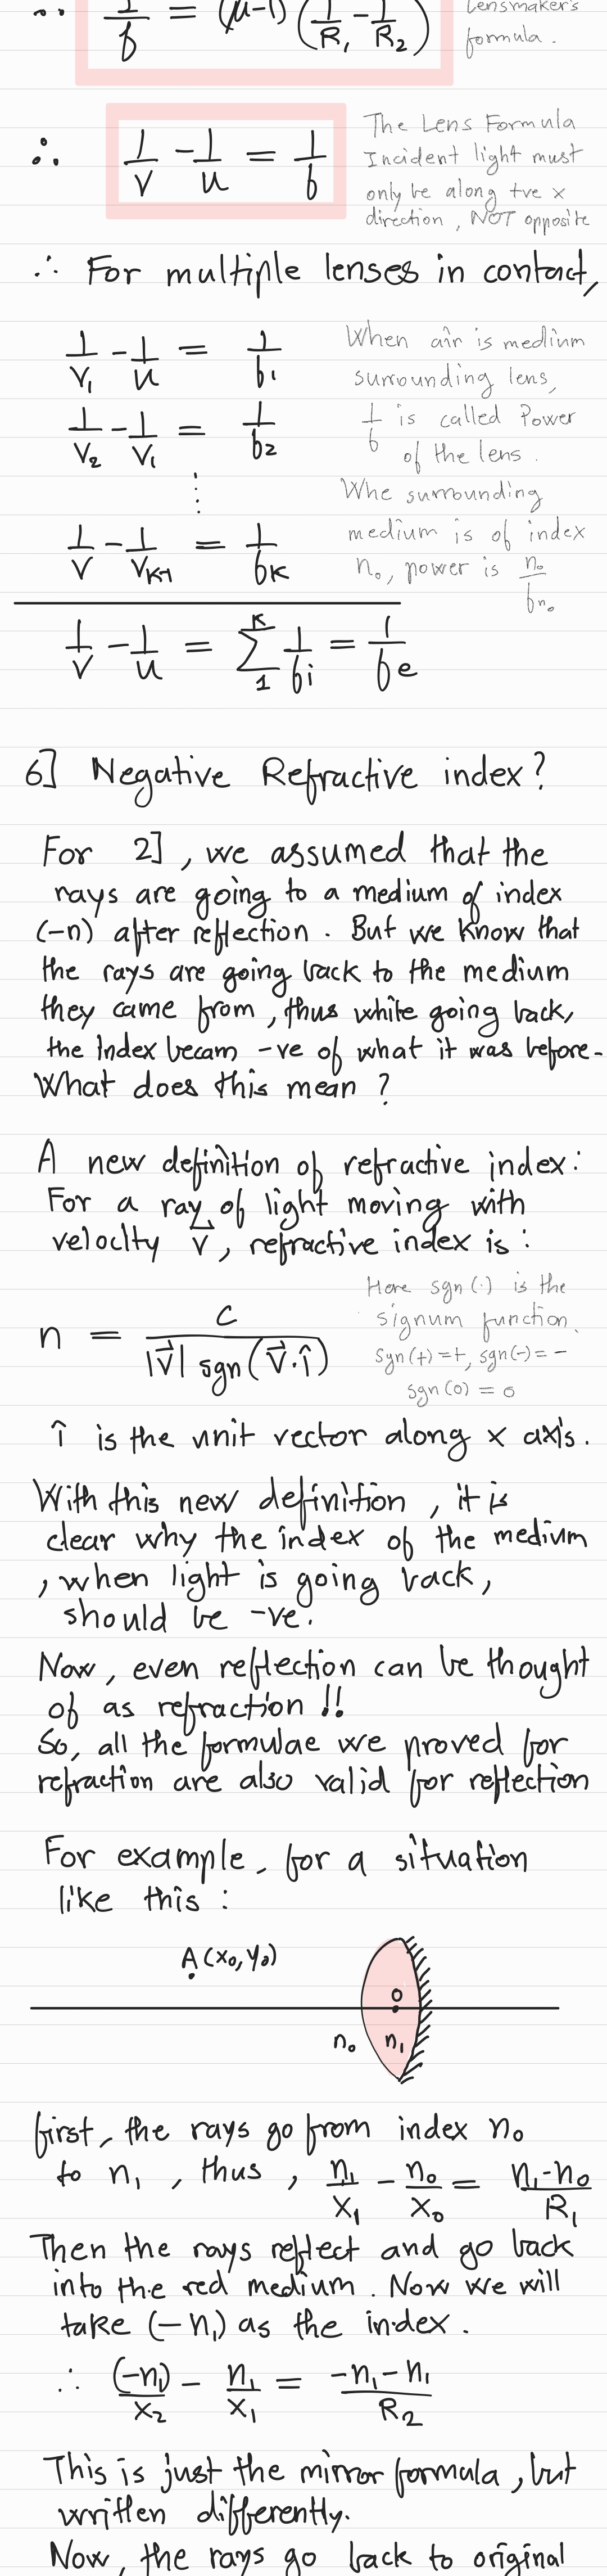 ∴ 1/f = (μ-1) (1/R₁ - 1/R₂)
Lensmaker's
formula.
∴ 1/v - 1/u = 1/f
The Lens Formula
Incident light must
only be along +ve x
direction, NOT opposite
∴ For multiple lenses in contact,
1/v₁ - 1/u = 1/f₁
1/v₂ - 1/v₁ = 1/f₂
⋮
1/v - 1/vK-1 = 1/fK
When air is medium
surrounding lens,
1/f is called Power
of the lens.
Whe surrounding
medium is of index
n₀, power is n₀/fn₀
1/v - 1/u = K∑1 1/fi = 1/fe
6] Negative Refractive index?
For 2], we assumed that the
rays are going to a medium of index
(-n) after reflection. But we know that
the rays are going back to the medium
they came from, thus while going back,
the Index becam -ve of what it was before-
What does this mean ?
A new definition of refractive index:
For a ray of light moving with
velocity v⃗, refractive index is:
n = c / |v⃗| sgn(v⃗·î)
Here sgn(·) is the
signum function.
sgn(+)=+, sgn(-)= -
sgn(0) = 0
î is the unit vector along x axis.
With this new definition, it is
clear why the index of the medium
, when light is going back,
should be -ve.
Now, even reflection can be thought
of as refraction !!
So, all the formulae we proved for
refraction are also valid for reflection
For example, for a situation
like this :
A (x₀, y₀)
O
n₀ n₁
first, the rays go from index n₀
to n₁, thus, n₁/x₁ - n₀/x₀ = n₁-n₀/R₁
Then the rays reflect and go back
into the red medium. Now we will
take (-n₁) as the index.
∴ (-n₁)/x₂ - n₁/x₁ = -n₁-n₁/R₂
This is just the mirror formula, but
written differently.
Now, the rays go back to original